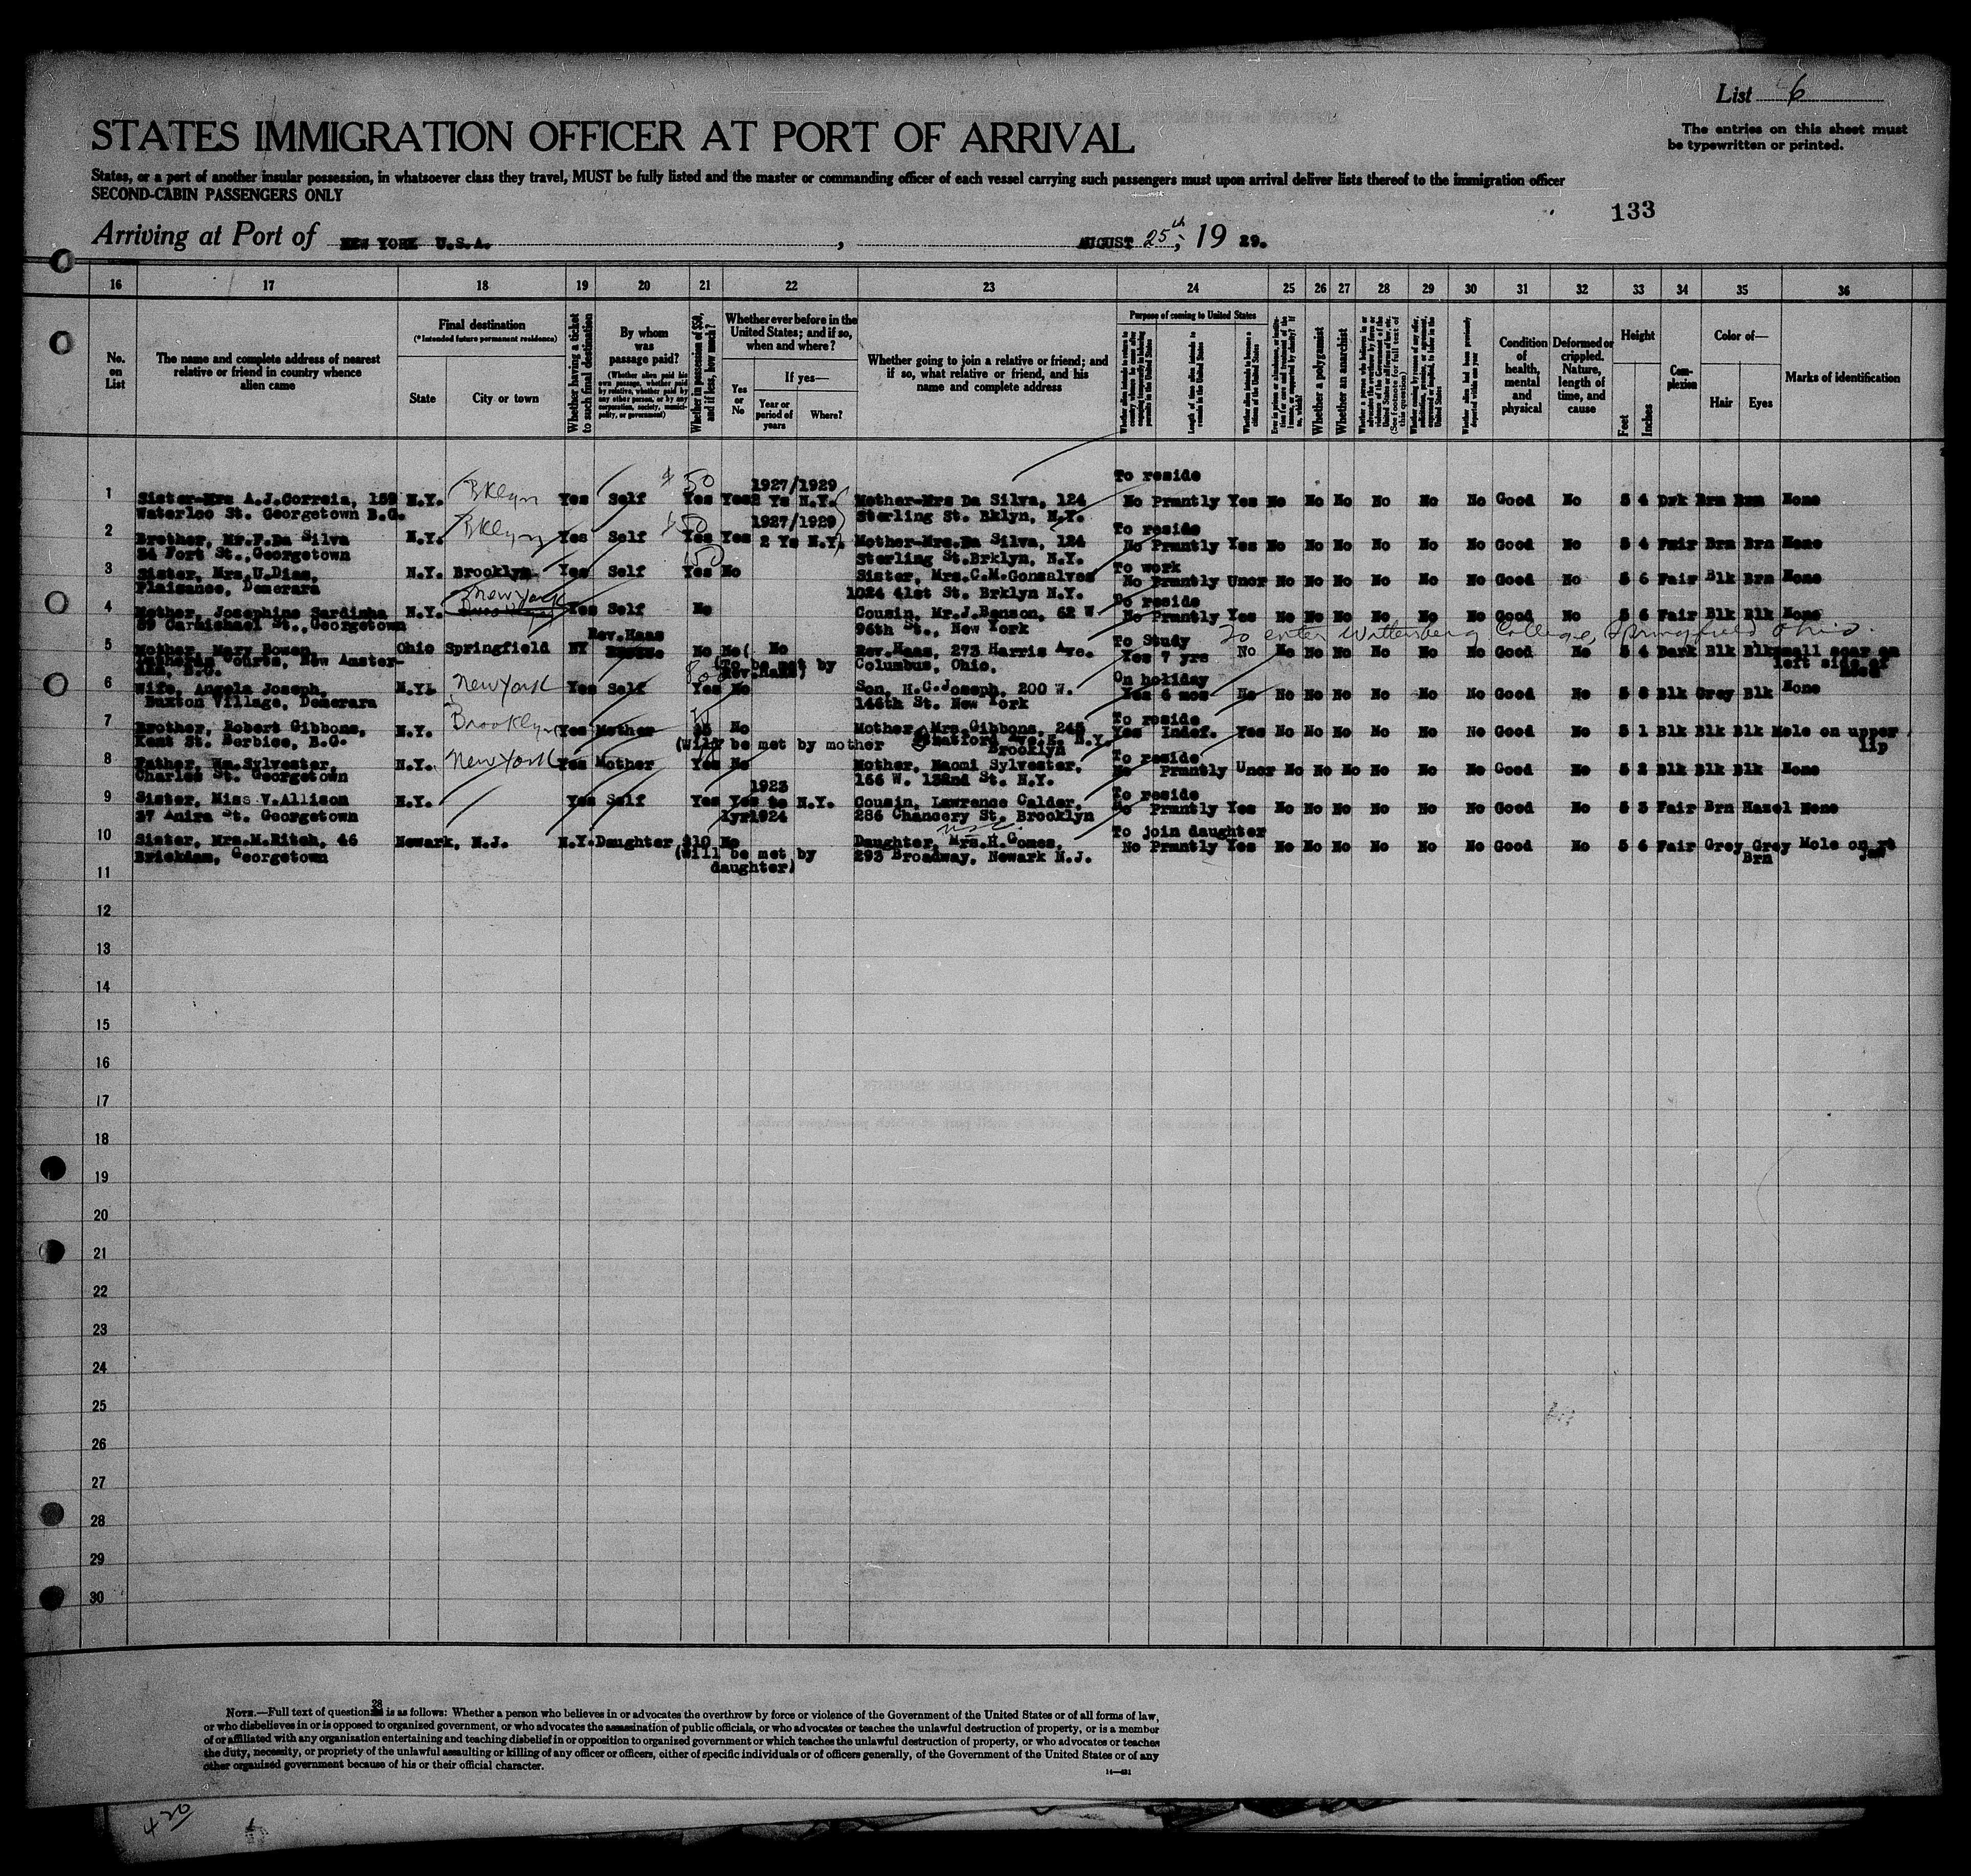 List 6
STATES IMMIGRATION OFFICER AT PORT OF ARRIVAL
The entries on this sheet must
be typewritten or printed.
States, or a port of another insular possession, in whatsoever class they travel, MUST be fully listed and the master or commanding officer of each vessel carrying such passengers must upon arrival deliver lists thereof to the immigration officer
SECOND-CABIN PASSENGERS ONLY
133
Arriving at Port of NEW YORK U.S.A. , AUGUST 25th, 19 29.
16 17 18 19 20 21 22 23 24 25 26 27 28 29 30 31 32 33 34 35 36
No. on List
The name and complete address of nearest relative or friend in country whence alien came
Final destination
(*Intended future permanent residence)
State
City or town
Whether having a ticket to such final destination
By whom was passage paid?
(Whether alien paid his own passage, whether paid by relative, whether paid by any other person, or by any corporation, society, municipality, or government)
Whether in possession of $50, and if less, how much?
Whether ever before in the United States; and if so, when and where?
Yes or No
If yes—
Year or period of years
Where?
Whether going to join a relative or friend; and if so, what relative or friend, and his name and complete address
Purpose of coming to United States
Length of time alien intends to remain in the United States
Whether alien intends to become a citizen of the United States
Whether a polygamist
Whether an anarchist
(See footnote for full text of this question)
Whether alien had been previously deported within one year
Condition of health, mental and physical
Deformed or crippled. Nature, length of time, and cause
Height
Feet
Inches
Complexion
Color of—
Hair
Eyes
Marks of identification
$ 50 1927/1929 To reside
1 Sister-Mrs A.J.Correia, 159 N.Y. Bklyn Yes Self Yes Yes 2 Ys N.Y. Mother-Mrs Da Silva, 124 No Prmntly Yes No No No No No No Good No 5 4 Drk Brn Brn None
Waterloo St. Georgetown B.G. Sterling St. Bklyn, N.Y.
$50 1927/1929 To reside
2 Brother, Mr.F.Da Silva N.Y. Bklyn Yes Self Yes Yes 2 Ys N.Y. Mother-Mrs.Da Silva, 124 No Prmntly Yes No No No No No No Good No 5 4 Fair Brn Brn None
34 Fort St., Georgetown Sterling St.Brklyn, N.Y.
150 To work
3 Sister, Mrs.U.Dias, N.Y. Brooklyn Yes Self Yes No Sister, Mrs.C.M.Gonsalves No Prmntly Uncr No No No No No No Good No 5 6 Fair Blk Brn None
Plaisance, Demerara 1024 41st St. Brklyn N.Y.
New York To reside
4 Mother, Josephine Sardinha N.Y. Yes Self No Cousin, Mr.J.Benson, 62 W No Prmntly Yes No No No No No No Good No 5 6 Fair Blk Blk None
59 Carmichael St., Georgetown 96th St., New York
Rev.Haas To Study To enter Wittenberg College, Springfield Ohio.
5 Mother, Mary Bowen, Ohio Springfield NY No No No Rev.Haas, 273 Harris Ave. Yes 7 yrs No No No No No No No Good No 5 4 Dark Blk Blk small scar on
Lutheran Courts, New Amsterdam, B.G. (To be met by Rev.Haas) Columbus, Ohio. left side of
800 On holiday
6 Wife, Angela Joseph, N.Y. New York Yes Self Yes No Son, H.C.Joseph, 200 W. Yes 6 mos No No No No No No No Good No 5 8 Blk Grey Blk None
Buxton Village, Demerara 146th St. New York
To reside
7 Brother, Robert Gibbons, N.Y. Brooklyn Yes Mother No Mother, Mrs.Gibbons, 245 Yes Indef. Yes No No No No No No Good No 5 1 Blk Blk Blk Mole on upper
Kent St. Berbice, B.G. (Will be met by mother Brooklyn N.Y. lip
To reside
8 Father, Wm.Sylvester, N.Y. New York Yes Mother Yes No Mother, Naomi Sylvester, No Prmntly Uncr No No No No No No Good No 5 2 Blk Blk Blk None
Charles St. Georgetown 166 W. 132nd St. N.Y.
1923 To reside
9 Sister, Miss V.Allison N.Y. Yes Self Yes Yes to N.Y. Cousin, Lawrence Calder, No Prmntly Yes No No No No No No Good No 5 3 Fair Brn Hazel None
37 Anira St. Georgetown 1yr1924 286 Chancery St. Brooklyn
To join daughter
10 Sister, Mrs.M.Ritch, 46 Newark, N.J. N.Y. Daughter $10 No Daughter, Mrs.H.Gomes, No Prmntly Yes No No No No No No Good No 5 6 Fair Grey Grey Mole on rt
Brickdam, Georgetown (Will be met by 293 Broadway, Newark N.J. Brn jaw
daughter)
11
12
13
14
15
16
17
18
19
20
21
22
23
24
25
26
27
28
29
30
28
NOTE.—Full text of question is as follows: Whether a person who believes in or advocates the overthrow by force or violence of the Government of the United States or of all forms of law,
or who disbelieves in or is opposed to organized government, or who advocates the assassination of public officials, or who advocates or teaches the unlawful destruction of property, or is a member
of or affiliated with any organization entertaining and teaching disbelief in or opposition to organized government or which teaches the unlawful destruction of property, or who advocates or teaches
the duty, necessity, or propriety of the unlawful assaulting or killing of any officer or officers, either of specific individuals or of officers generally, of the Government of the United States or of any
other organized government because of his or their official character.
14—431
420